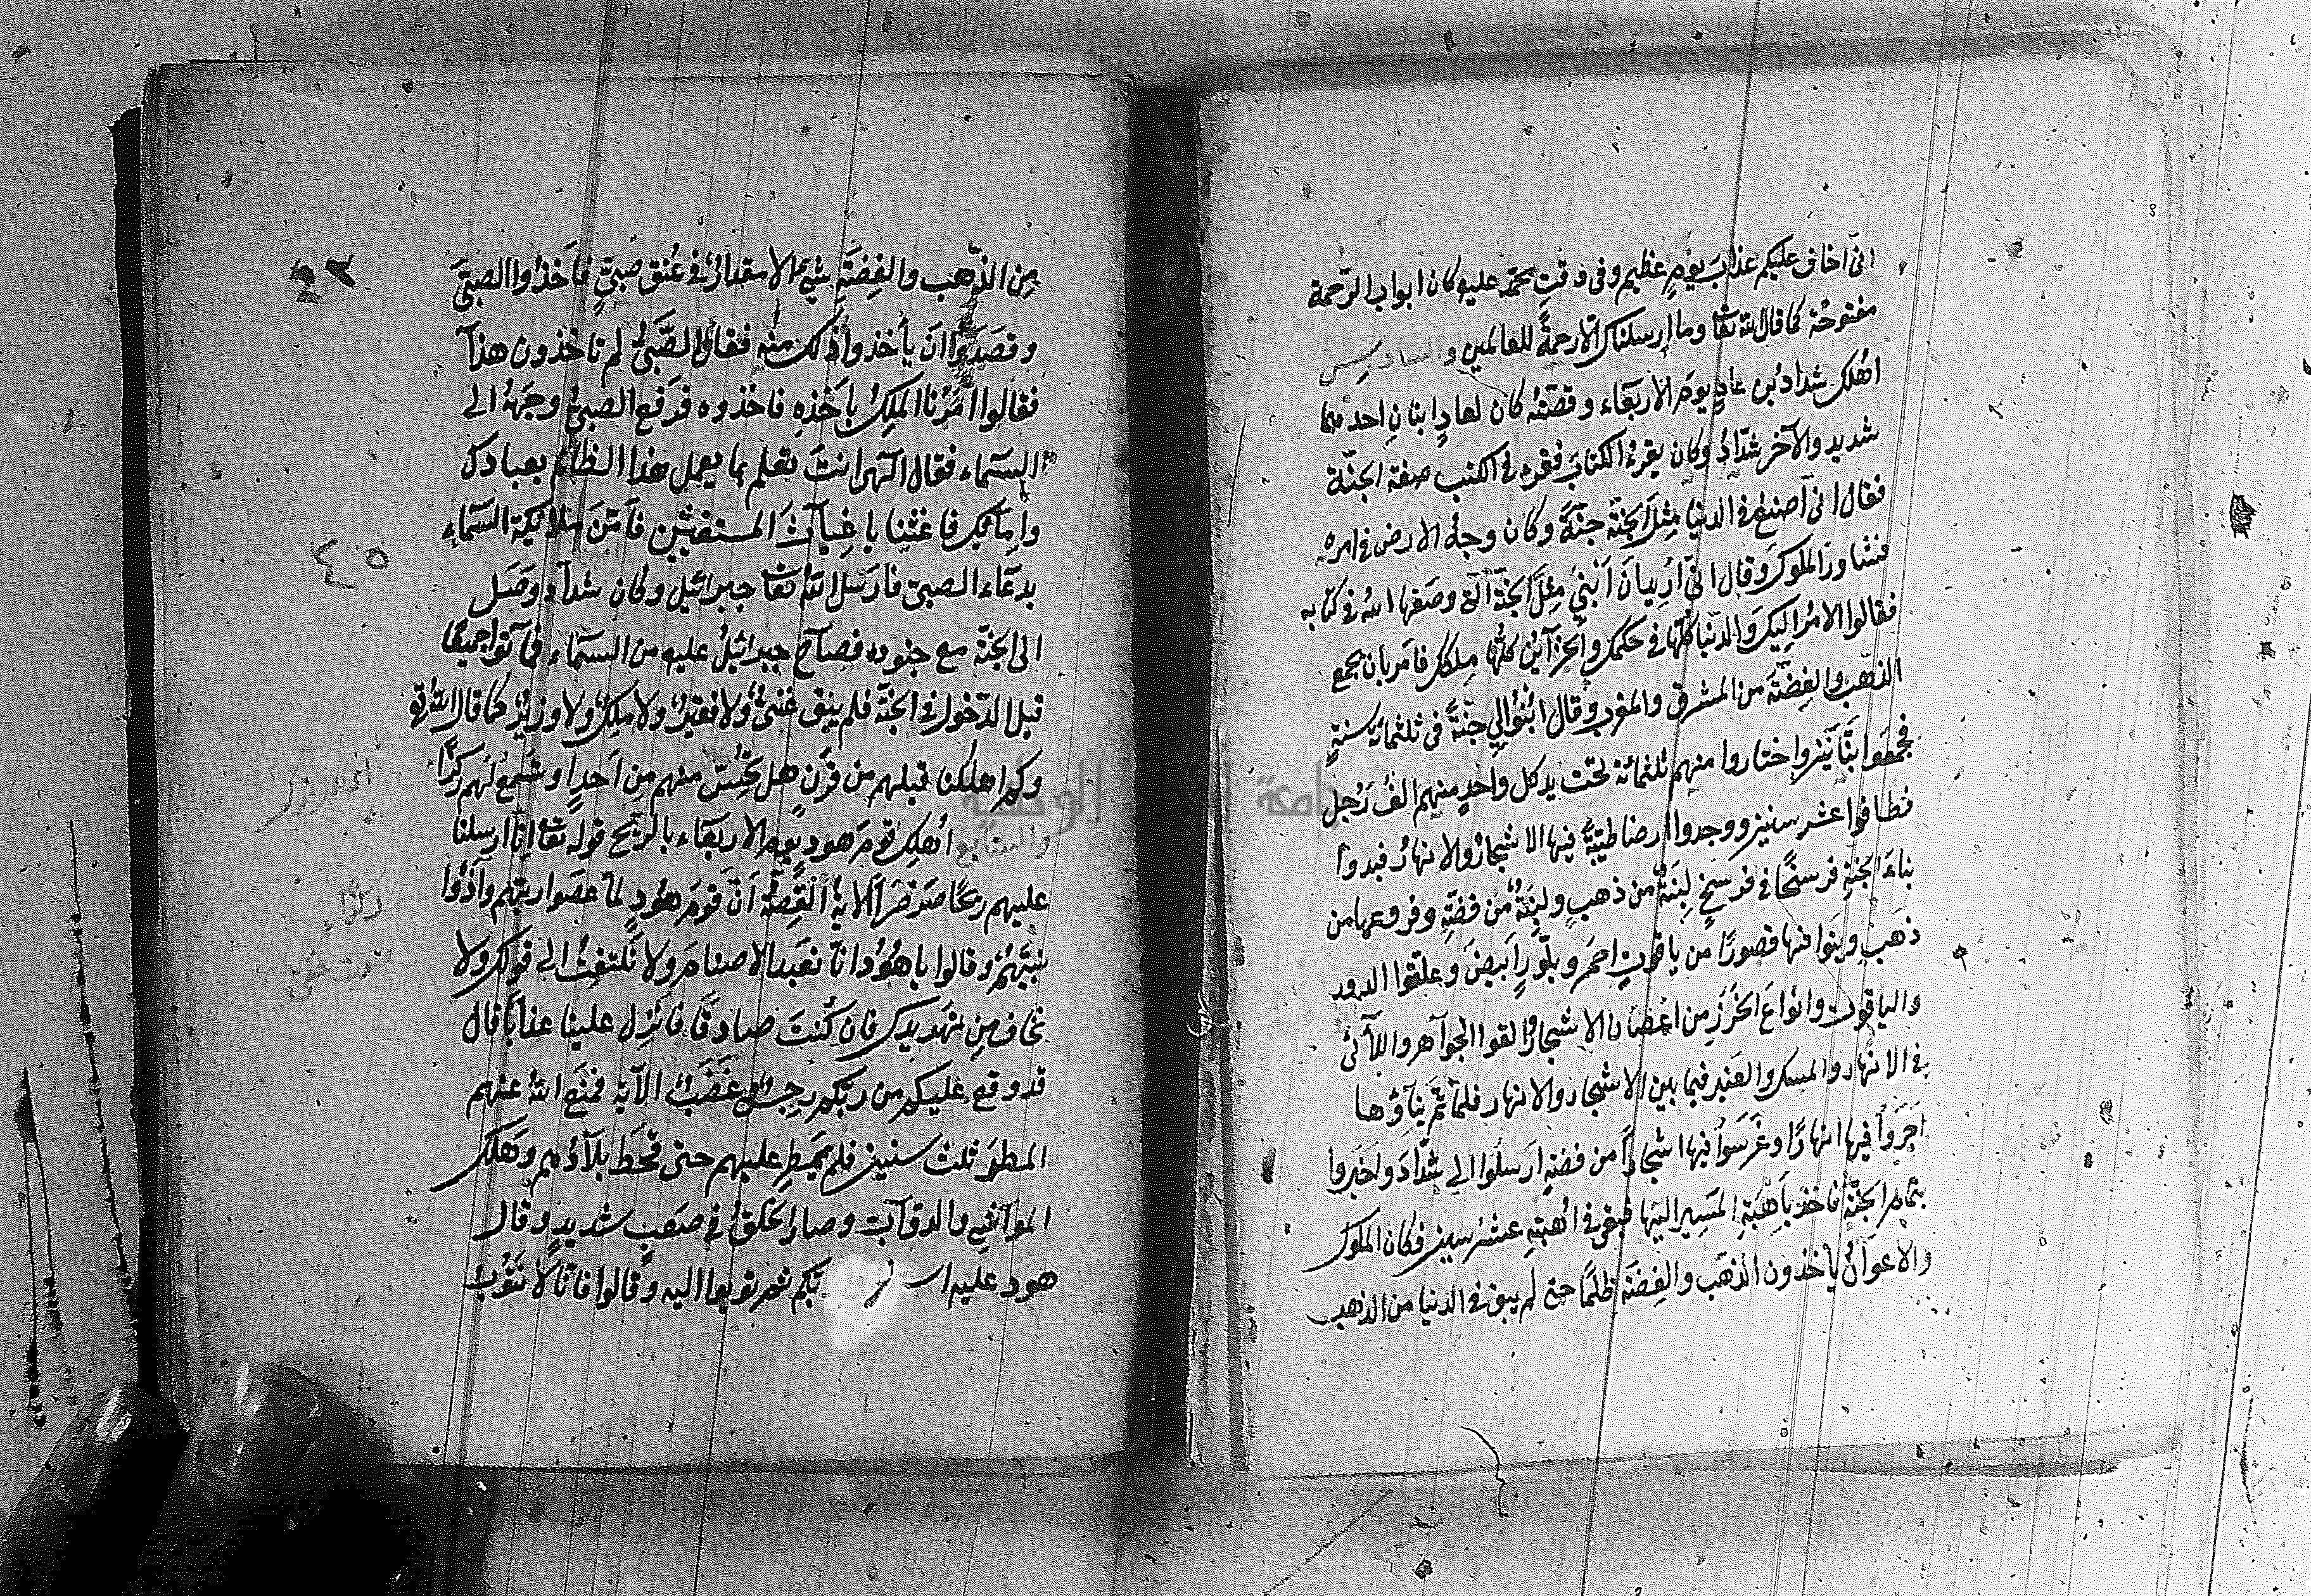 انى اخاف عليكم عذاب يوم عظيم وفى وقت محمّد عليه كان ابواب الرّحمة
مفتوحة كما قال الله تعا وما ارسلناك الّا رحمةً للعالمين والسادس
اُهلك شداد بن عاد يوم الاربعاء وقصّته كان لعادٍ ابنانِ احدهما
شديد والآخر شدّاد وكان يقرء الكتابَ فقرء فى الكتب صفة الجنّة
فقال انى اصنع فى الدنيا مثل الجنّة جنّةً وكان وجهُ الارض فى امره
فتشاور الملوك وقال انّى اُريد ان اَبنِيَ مثل الجنّة الّتى وصفها الله فى كتابه
فقالوا الامرُ اليك والدّنيا كلّها فى حكمك والخزآئن كلّها ملكك فامر بان يجمع
الذّهب والفِضّة من المشرق والمغرب وقال ابنُوا لِي جنّةً فى ثلثمائة سنةٍ
فجمعوا بنّآئين واختاروا منهم ثلثمائة تحت يد كل واحدٍ منهم الف رَجل
فطافوا عشر سنين ووجدوا ارضا طيّبةً فيها الاشجار والانهار فبدوا
بناءَ الجنّةِ فرسخًا فى فرسخٍ لبِنَةٌ من ذهبٍ ولبِنَةٌ من فضّةٍ وفروعها من
ذهب وبنوا فيها قصورًا من ياقوتٍ احمر وبلّورٍ ابيض وعلّقوا الدرر
والياقوت وانواعَ الخرز من اغصان الاشجار والقوا الجوآهر واللآلئ
فى الانهار والمسك والعنبر فيما بين الاشجار والانهار فلمّا تمّ بنآؤها
اَجرَوا فيها انهارًا وغَرَسُوا فيها اشجارًا من فضّةٍ ارسلوا الى شدّاد واخبروا
بتمام الجنّة فاخذ بِاُهبةِ المسير اليها فبقى فى اُهبته عشر سنين فكان الملوك
والاعوان يأخذون الذهب والفضّة ظلمًا حتى لم يبق فى الدنيا من الذهب
مِن الذّهب والفِضّةِ شئ الا مقدارٌ فى عُنق صبىٍّ فاَخذوا الصبىَّ
وقصدوا ان يأخذوا ذلك منه فقال الصّبىُّ لم تاخذون هذا
فقالوا امرنا الملِكُ باَخذِهِ فاخذوه فرفع الصبىُّ وجهَهُ الى
السّماء فقال الٓهى انتَ تعلم بما يعمل هذا الظالم بعبادك
وإمآئك فاغثنا يا غِياثَ المستغيثين فاَمَّنَ ملائكة السّماء
بدعآء الصبىّ فارسَل الله تعا جبرائيل وكان شداد وصَل
الى الجنّة مع جنوده فصآح جبرائيل عليه من السّماء فماتوا جميعًا
قبل الدّخول فى الجنّة فلم يبق غنىٌّ ولا فقيرٌ ولا ملِكٌ ولا وزيرٌ كما قال الله تع
وكم اهلكنا قبلهم من قَرنٍ هل تُحِسّ منهم مِن اَحدٍ او تسمع لهم رِكزًا
والسّابع اُهلِك قومَ هود يوم الاربعآء بالرّيح قوله تعا انّا ارسلنا
عليهم ريحًا صَرصَرًا الآية القِصّة انّ قومَ هُودٍ لمّا عصَوا ربّهم وآذَوا
نبيّهُم وقالوا يا هُودُ انّا نعبد الاصنامَ ولا نلتفتُ الى قولك ولا
نخاف مِن تهديدك فان كُنتَ صادقًا فانزِل علينا عذابًا قال
قد وقع عليكم من ربّكم رجسٌ وغَضَبٌ الآية فمنع الله عنهم
المطر ثلث سنين فلم يمطر عليهم حتى قحَط بلآدُهم وهَلَك
الموآشِى والدوآبّ وصار الخلق فى صَعبٍ شديدٍ وقال
هود عليه ... ربّكم ثم توبوا اليه وقالوا فانّا لا نتوبُ
٤٥